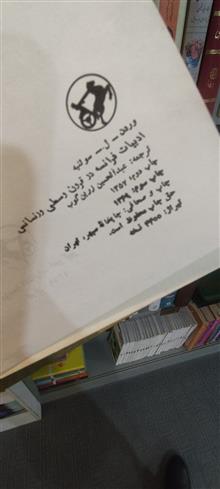 وردن - ل - سولنیه
ادبیات فرانسه در قرون وسطی و رنسانس
ترجمه: عبدالحسین زرین کوب
چاپ دوم: ۱۳۵۷
چاپ سوم: ۱۳۶۹
چاپ و صحافی: چاپخانهٔ سپهر، تهران
حق چاپ محفوظ است.
تیراژ: ۴۴۰۰ نسخه